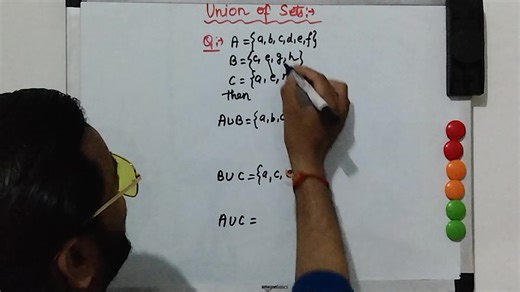 Union of Sets:-
Q:- A = {a, b, c, d, e, f}
B = {c, e, g, h}
C = {a, e,
then
A∪B = {a, b, c
B∪C = {a, c, e
A∪C =